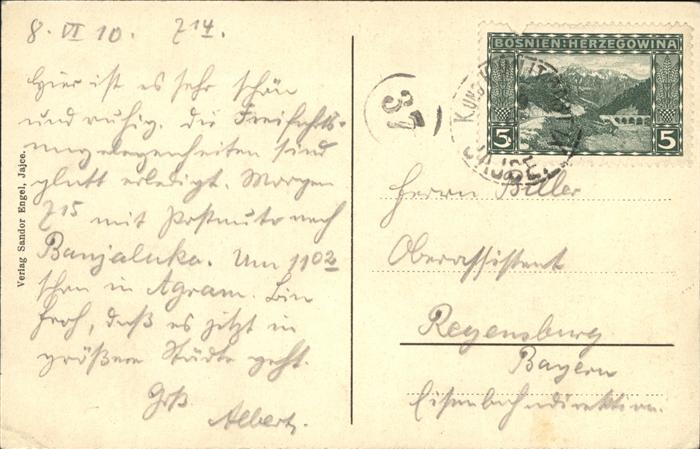 8. VI 10. 7 14.
Hier ist es sehr schön
und ruhig. die Freifahrts-
angelegenheiten sind
glatt erledigt. Morgen
7 15 mit Postauto nach
Banjaluka. Um 11 02
schon in Agram. Bin
froh, daß es jetzt in
größere Städte geht.
Grß.
Albert.
Verlag Sandor Engel, Jajce.
37
BOSNIEN-HERZEGOWINA
5 5
JAJCE
Herrn Biller
Oberassistent
Regensburg
Bayern
Eisenbahndirektion.